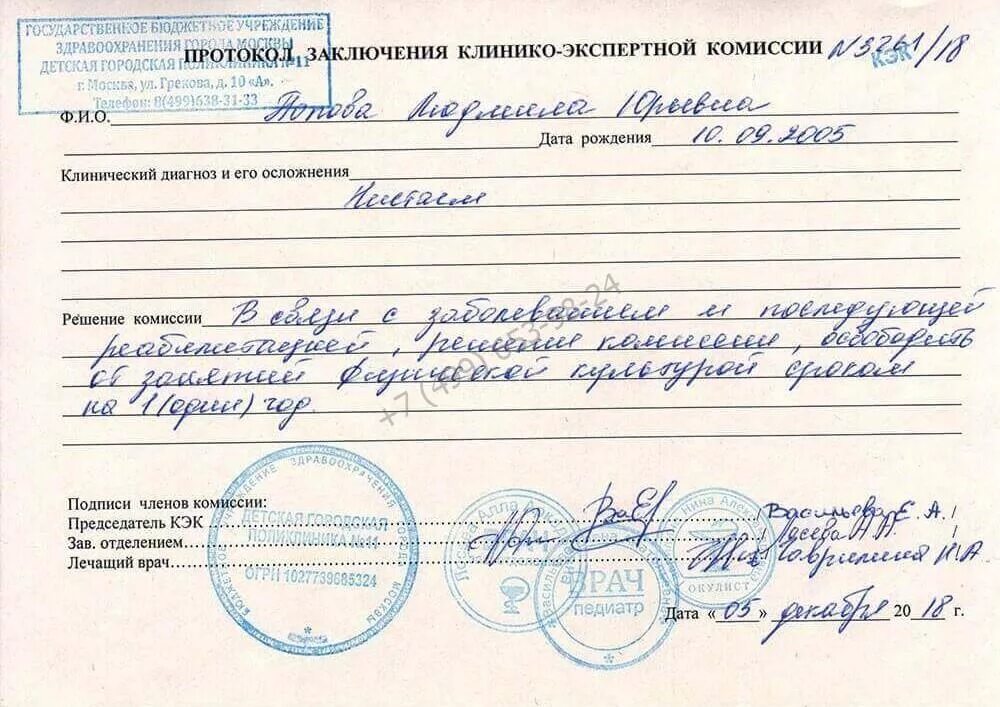 ГОСУДАРСТВЕННОЕ БЮДЖЕТНОЕ УЧРЕЖДЕНИЕ
ЗДРАВООХРАНЕНИЯ ГОРОДА МОСКВЫ
ДЕТСКАЯ ГОРОДСКАЯ ПОЛИКЛИНИКА №11
г. Москва, ул. Грекова, д. 10 «А».
Телефон: 8(499)638-31-33
ПРОТОКОЛ ЗАКЛЮЧЕНИЯ КЛИНИКО-ЭКСПЕРТНОЙ КОМИССИИ N3261/18
КЭК
Ф.И.О. Попова Людмила Юрьевна
Дата рождения 10.09.2005
Клинический диагноз и его осложнения
Нистагм
Решение комиссии В связи с заболеванием и последующей
реабилитацией, решением комиссии, освободить
от занятий физической культурой сроком
на 1 (один) год.
+7 (499) 653-58-24
Подписи членов комиссии:
Председатель КЭК Васильева Е. А.
Зав. отделением Лосева А.А.
Лечащий врач Гаврилина Н.А.
ДЕТСКАЯ ГОРОДСКАЯ
ПОЛИКЛИНИКА №11
ОГРН 1027739685324
ВРАЧ
педиатр
ОКУЛИСТ
Дата «05» декабря 2018 г.